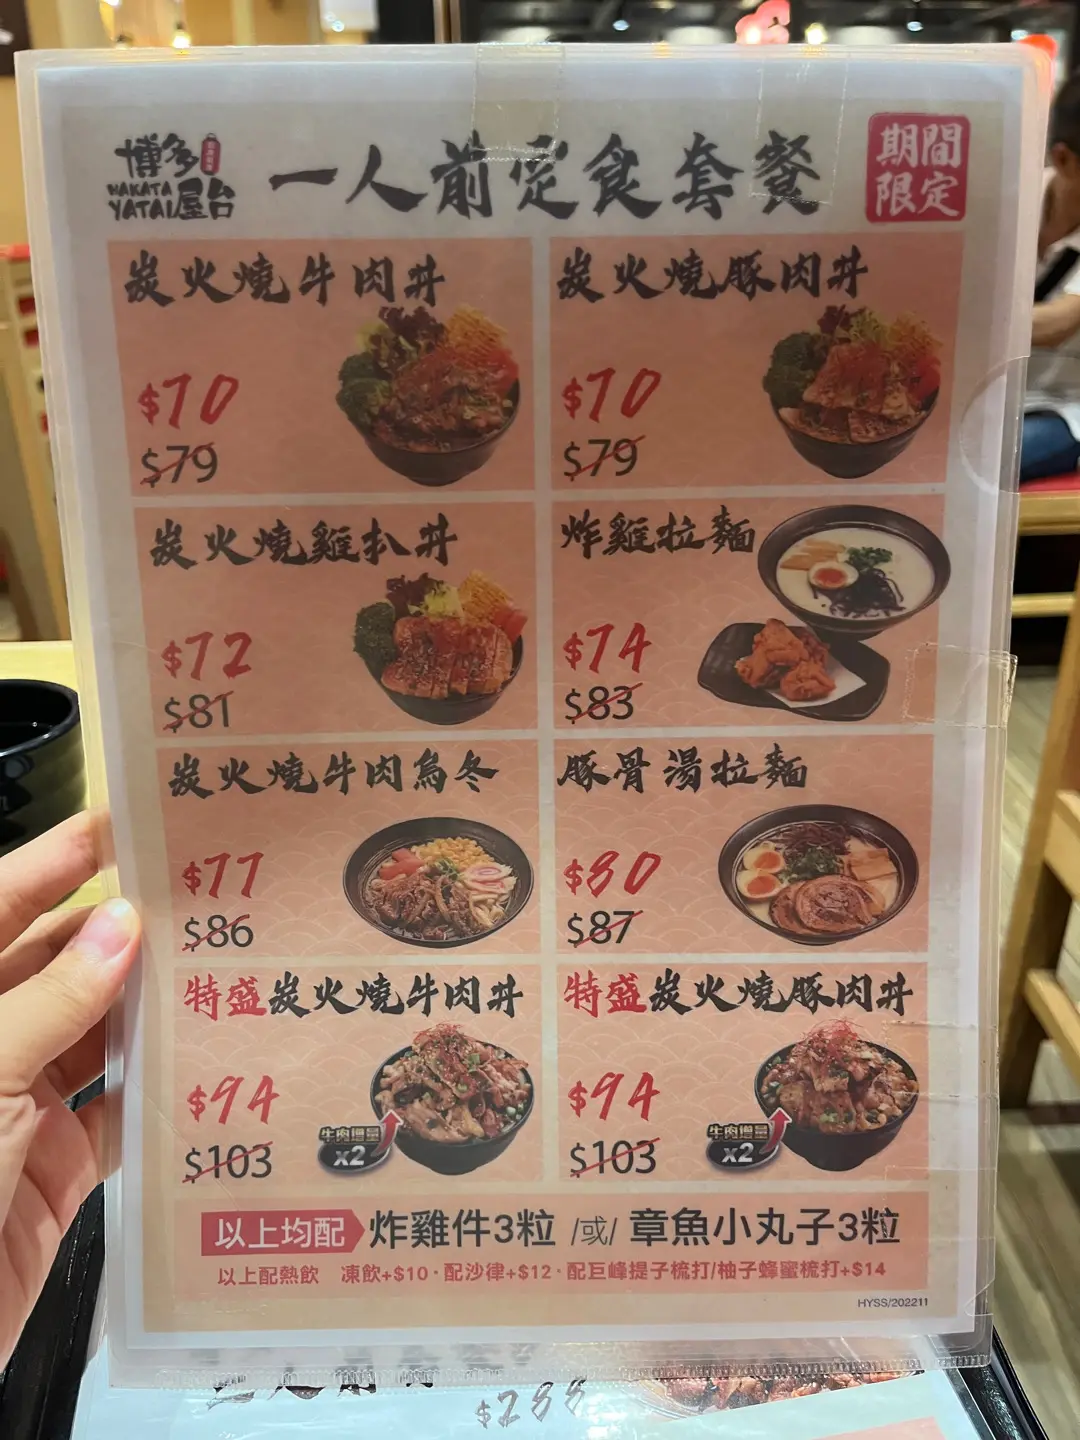 博多
HAKATA
YATAI屋台
一人前定食套餐
期間
限定
炭火燒牛肉丼
$70
$79
炭火燒豚肉丼
$70
$79
炭火燒雞扒丼
$72
$81
炸雞拉麵
$74
$83
炭火燒牛肉烏冬
$77
$86
豚骨湯拉麵
$80
$87
特盛炭火燒牛肉丼
$94
$103
牛肉增量
x2
特盛炭火燒豚肉丼
$94
$103
牛肉增量
x2
以上均配 炸雞件3粒 /或/ 章魚小丸子3粒
以上配熱飲 凍飲+$10·配沙律+$12·配巨峰提子梳打/柚子蜂蜜梳打+$14
HYSS/202211
$288